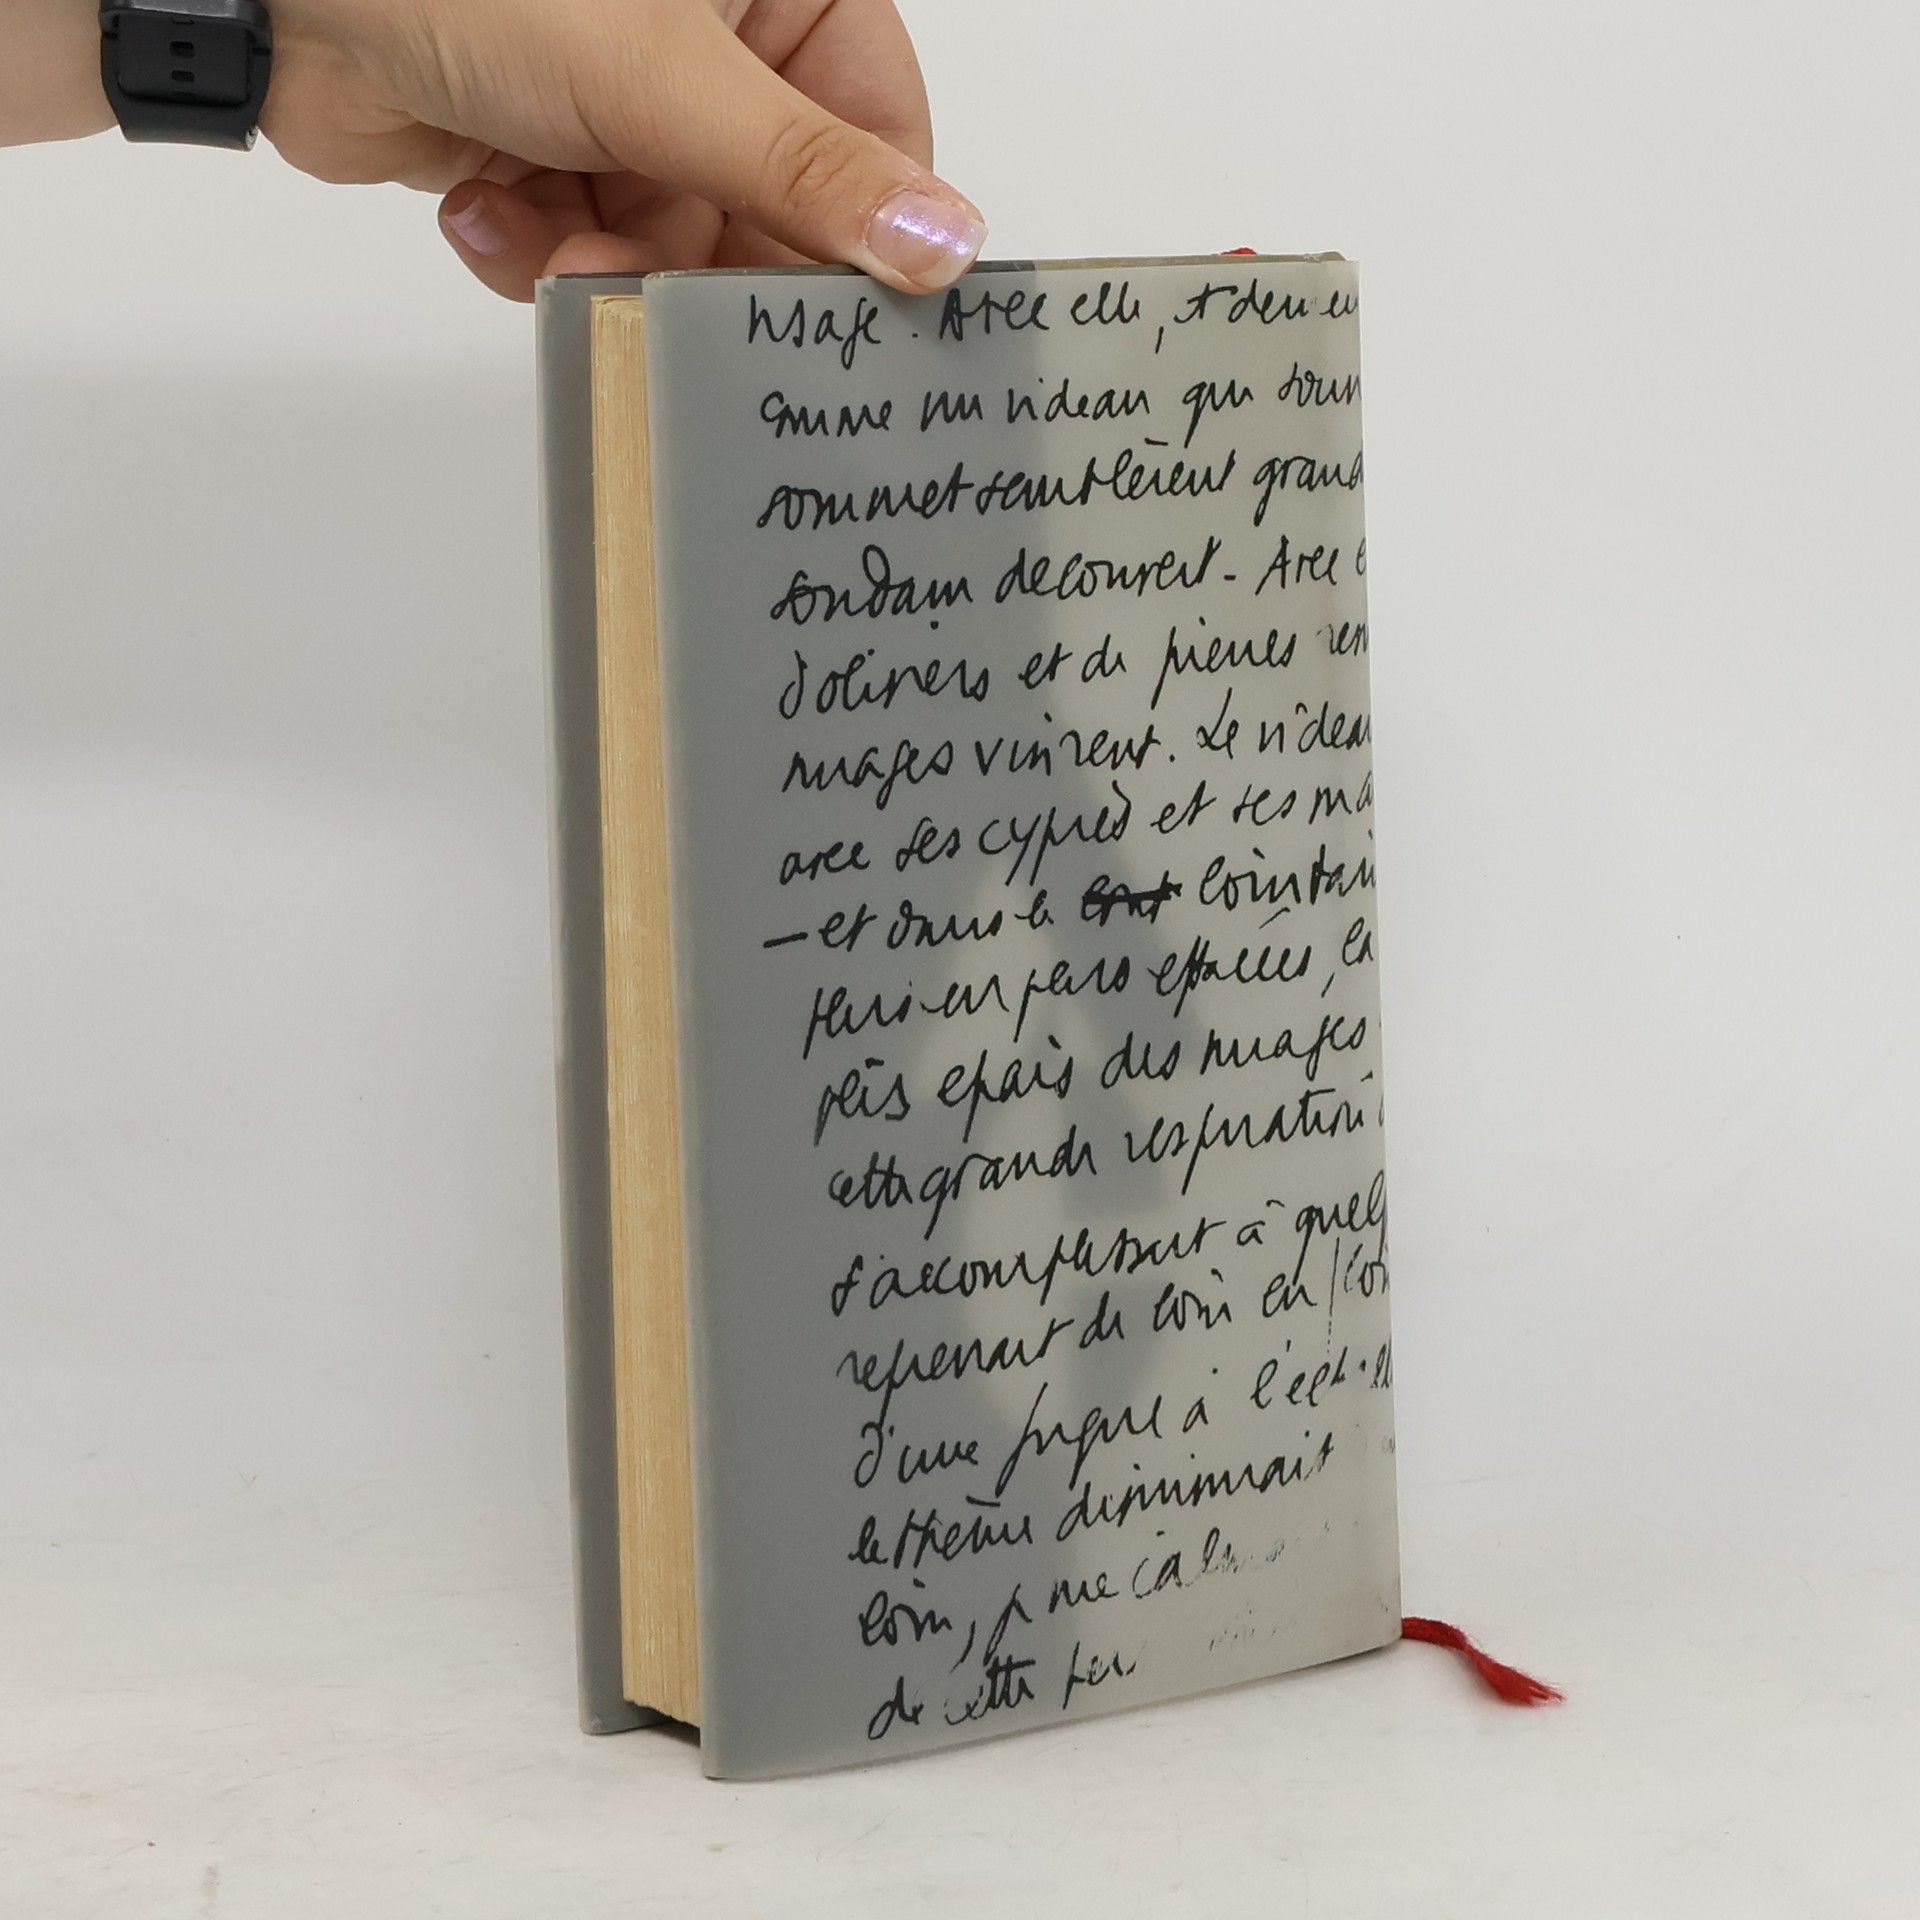 visage. Avec elle, et derrière
comme un rideau qui
sommet semblèrent grand
soudain découvert - Avec e
d'oliviers et de pierres
nuages vinrent. Le rideau
avec ses cyprès et ses ma
— et dans le lointain
plus en plus effacées, la
plis epais des nuages
cette grande respiration
s'accomplissait à quelq
reprenait de loin en loin
d'une fugue à l'échelle
le thème diminuait
loin, je me calm
de cette